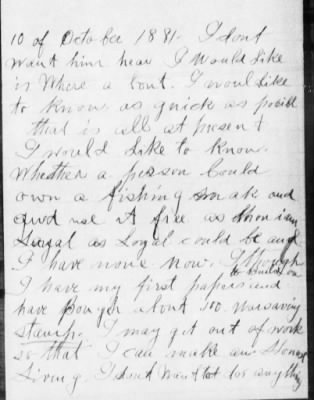 10 of October 1881. I dont
want him hear I Would Like
is Where a bout. I woul Like
to know as quick as
that is all at present
I would Like to know.
Whether a person Could
own a fishing smak and
use it free as
as Loyal could be and
I have none Now. I
to build on
I have my first papers and
have bough about 500. Warsaving
stamp. I may get out of work
so that I can make an Honest
Living. I dont want to for anything